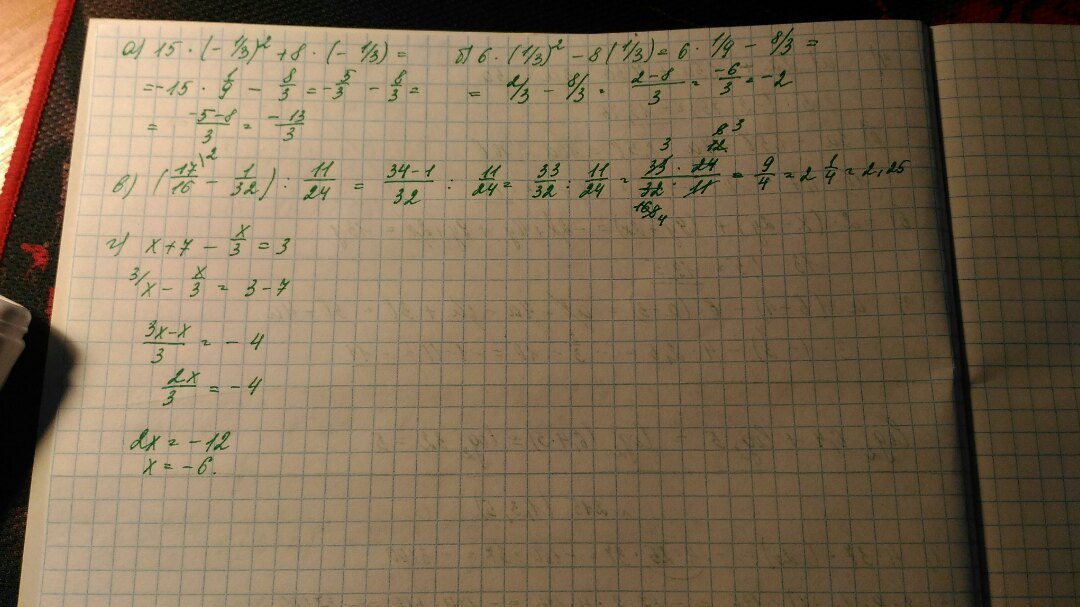 а) 15 · (- 1/3)² + 8 · (- 1/3) =
= -15 · 1/9 - 8/3 = -5/3 - 8/3 =
= -5-8/3 = -13/3
б) 6 · (1/3)² - 8 (1/3) = 6 · 1/9 - 8/3 =
= 2/3 - 8/3 = 2-8/3 = -6/3 = -2
в) (17/16 \2 - 1/32) : 11/24 = 34-1/32 : 11/24 = 33/32 : 11/24 = 33 · 24/32 · 11 = 9/4 = 2 1/4 = 2,25
г) x + 7 - x/3 = 3
3/ x - x/3 = 3-7
3x-x/3 = -4
2x/3 = -4
2x = -12
x = -6.